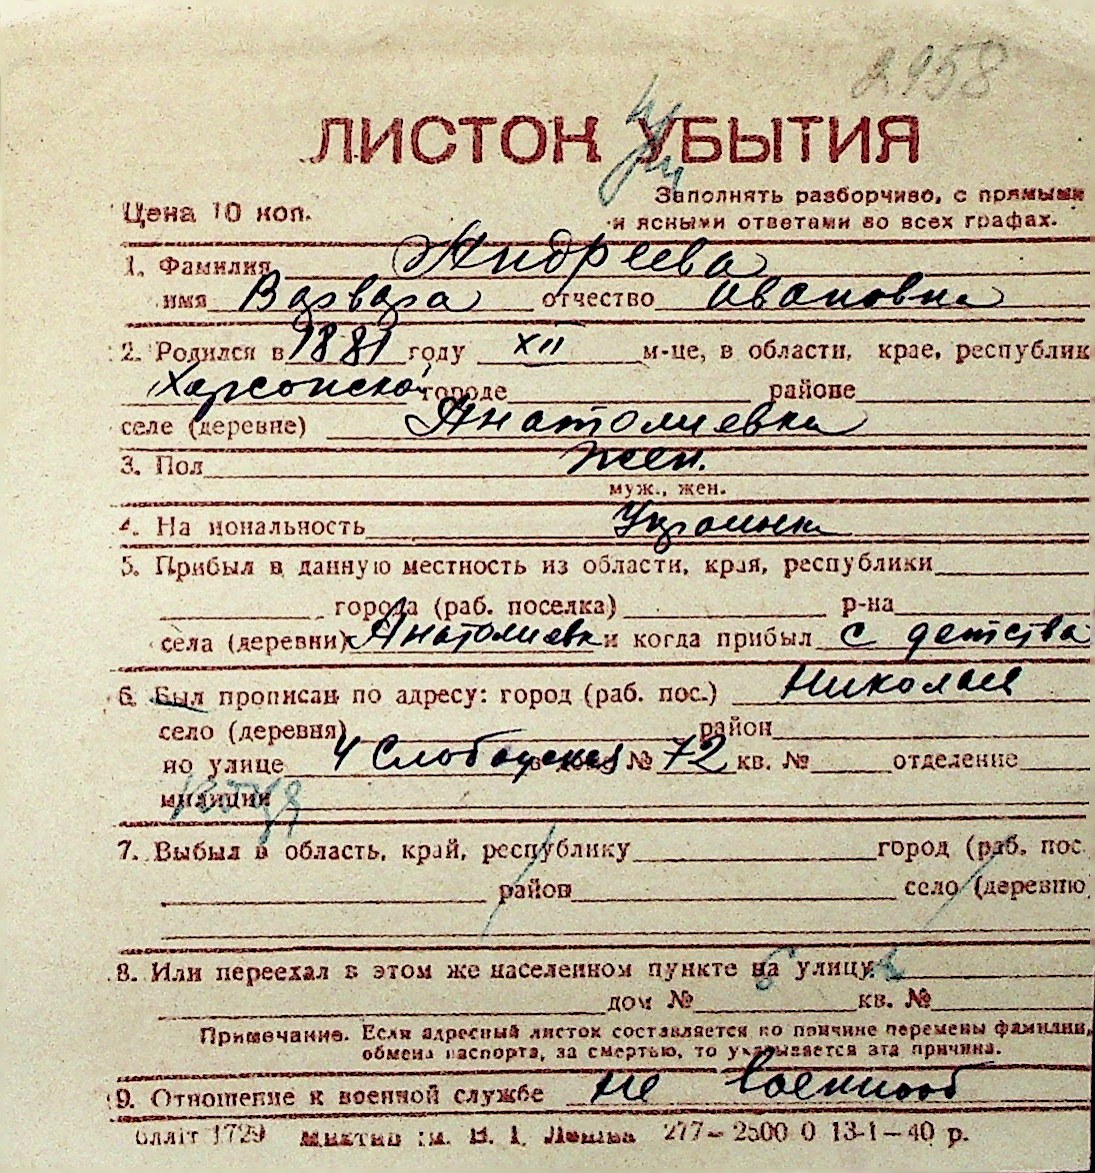 2958
ЛИСТОК УБЫТИЯ
Цена 10 коп.
Заполнять разборчиво, с прямыми
и ясными ответами во всех графах.
1. Фамилия Андреева
имя Варвара отчество Ивановна
2. Родился в 1881 году XII м-це, в области, крае, республик
Херсонской городе районе
селе (деревне) Анатолиевка
3. Пол Жен.
муж., жен.
4. На иональность Украинка
5. Прибыл в данную местность из области, края, республики
города (раб. поселка) р-на
села (деревни) Анатолиевка и когда прибыл с детства
6. Был прописан по адресу: город (раб. пос.) Николаев
село (деревня) район
по улице 4 Слободская № 72 кв. № отделение
милиции
7. Выбыл в область, край, республику город (раб. пос
район село (деревню
8. Или переехал в этом же населенном пункте на улицу
дом № кв. №
Примечание. Если адресный листок составляется по причине перемены фамилии,
обмена паспорта, за смертью, то указывается эта причина.
9. Отношение к военной службе не военнооб
1729 277–2500 0 13-1–40 р.